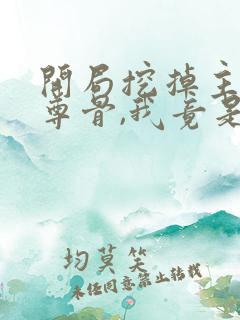 開局挖掉主
尊骨,我竟是
均莫笑
未經同意禁止轉載